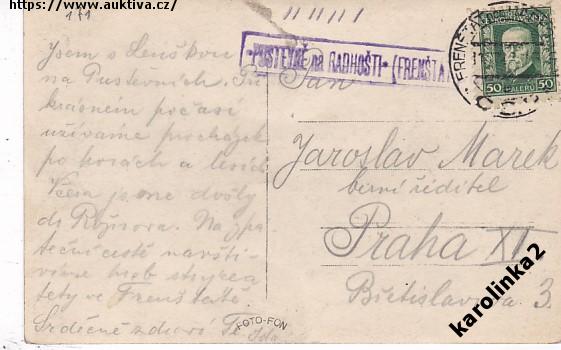 https://www.auktiva.cz/
111
Jsem s Lenškou
na Pustevnách. Při
krásném počasí
užíváme procházek
po horách a lesích
Včera jsme došly
do Rožnova. Na zpá
teční cestě navští
víme hrob strýce a
tety ve Frenštátě.
Srdečně zdraví
Ida
PUSTEVNĚ na RADHOŠTI (FRENŠTA
FRENŠTÁT
50 HALÉŘŮ 50
Pan
Jaroslav Marek
berní ředitel
Praha XII
Břetislavova 3.
FOTO-FON
karolinka2